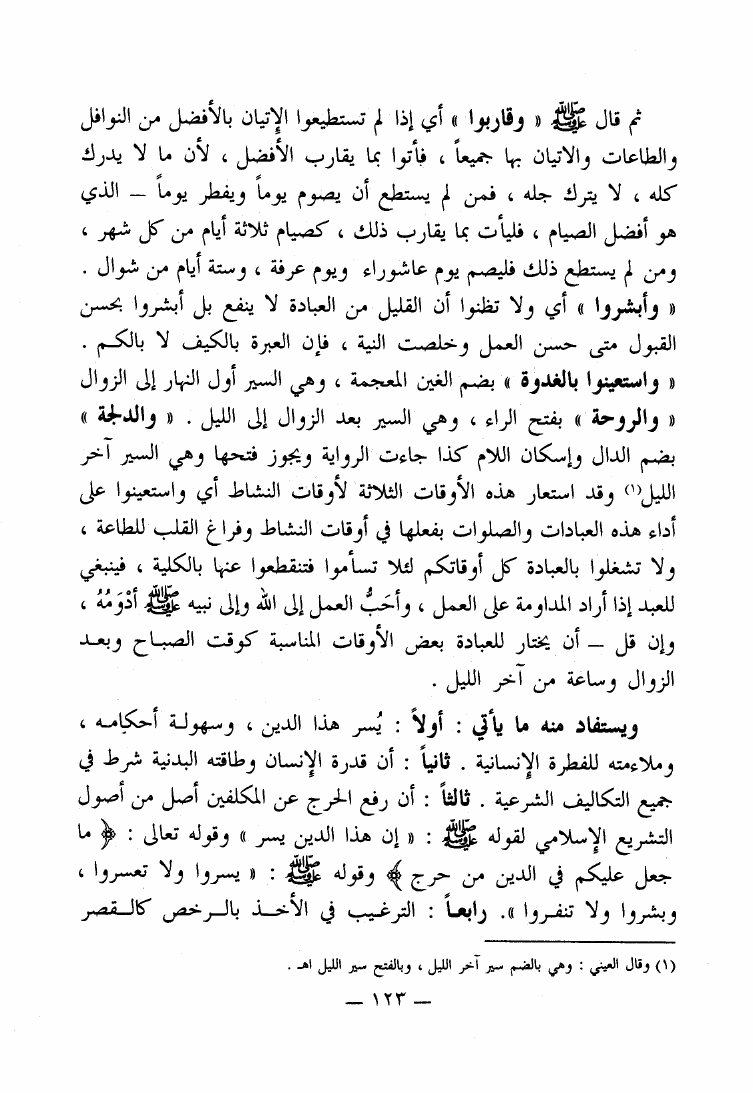 ثم قال ﷺ « وقاربوا » أي إذا لم تستطيعوا الإتيان بالأفضل من النوافل
والطاعات والاتيان بها جميعاً ، فأتوا بما يقارب الأفضل ، لأن ما لا يدرك
كله ، لا يترك جله ، فمن لم يستطع أن يصوم يوماً ويفطر يوماً – الذي
هو أفضل الصيام ، فليأت بما يقارب ذلك ، كصيام ثلاثة أيام من كل شهر ،
ومن لم يستطع ذلك فليصم يوم عاشوراء ويوم عرفة ، وستة أيام من شوال .
« وأبشروا » أي ولا تظنوا أن القليل من العبادة لا ينفع بل أبشروا بحسن
القبول متى حسن العمل وخلصت النية ، فإن العبرة بالكيف لا بالكم .
« واستعينوا بالغدوة » بضم الغين المعجمة ، وهي السير أول النهار إلى الزوال
« والروحة » بفتح الراء ، وهي السير بعد الزوال إلى الليل . « والدلجة »
بضم الدال وإسكان اللام كذا جاءت الرواية ويجوز فتحها وهي السير آخر
الليل(١) وقد استعار هذه الأوقات الثلاثة لأوقات النشاط أي واستعينوا على
أداء هذه العبادات والصلوات بفعلها في أوقات النشاط وفراغ القلب للطاعة ،
ولا تشغلوا بالعبادة كل أوقاتكم لئلا تسأموا فتنقطعوا عنها بالكلية ، فينبغي
للعبد إذا أراد المداومة على العمل ، وأحَبُّ العمل إلى الله وإلى نبيه ﷺ أدْوَمُهُ ،
وإن قل – أن يختار للعبادة بعض الأوقات المناسبة كوقت الصباح وبعد
الزوال وساعة من آخر الليل .
ويستفاد منه ما يأتي : أولاً : يُسر هذا الدين ، وسهولة أحكامه ،
وملاءمته للفطرة الإنسانية . ثانياً : أن قدرة الإنسان وطاقته البدنية شرط في
جميع التكاليف الشرعية . ثالثاً : أن رفع الحرج عن المكلفين أصل من أصول
التشريع الإسلامي لقوله ﷺ : « إن هذا الدين يسر » وقوله تعالى : ﴿ ما
جعل عليكم في الدين من حرج ﴾ وقوله ﷺ : « يسروا ولا تعسروا ،
وبشروا ولا تنفروا ». رابعاً : الترغيب في الأخذ بالرخص كالقصر
(١) وقال العيني : وهي بالضم سير آخر الليل ، وبالفتح سير الليل اهـ .
– ١٢٣ –